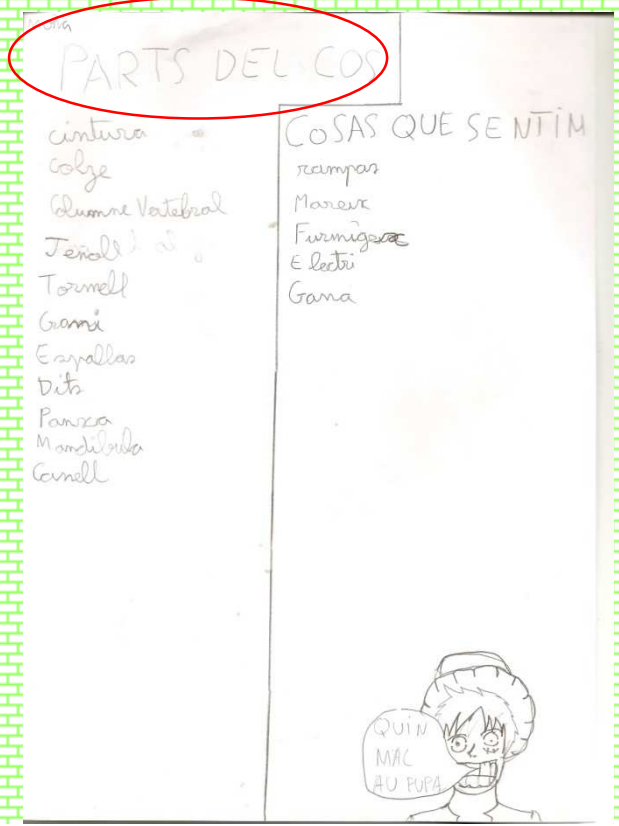 PARTS DEL COS
cintura
colze
Columne Vertebral
Jenoll
Tormell
Espallas
Dits
Panxa
Mandibula
Canell
COSAS QUE SENTIM
rampas
Mareix
Electri
Gana
QUIN
MAL
AU PUPA